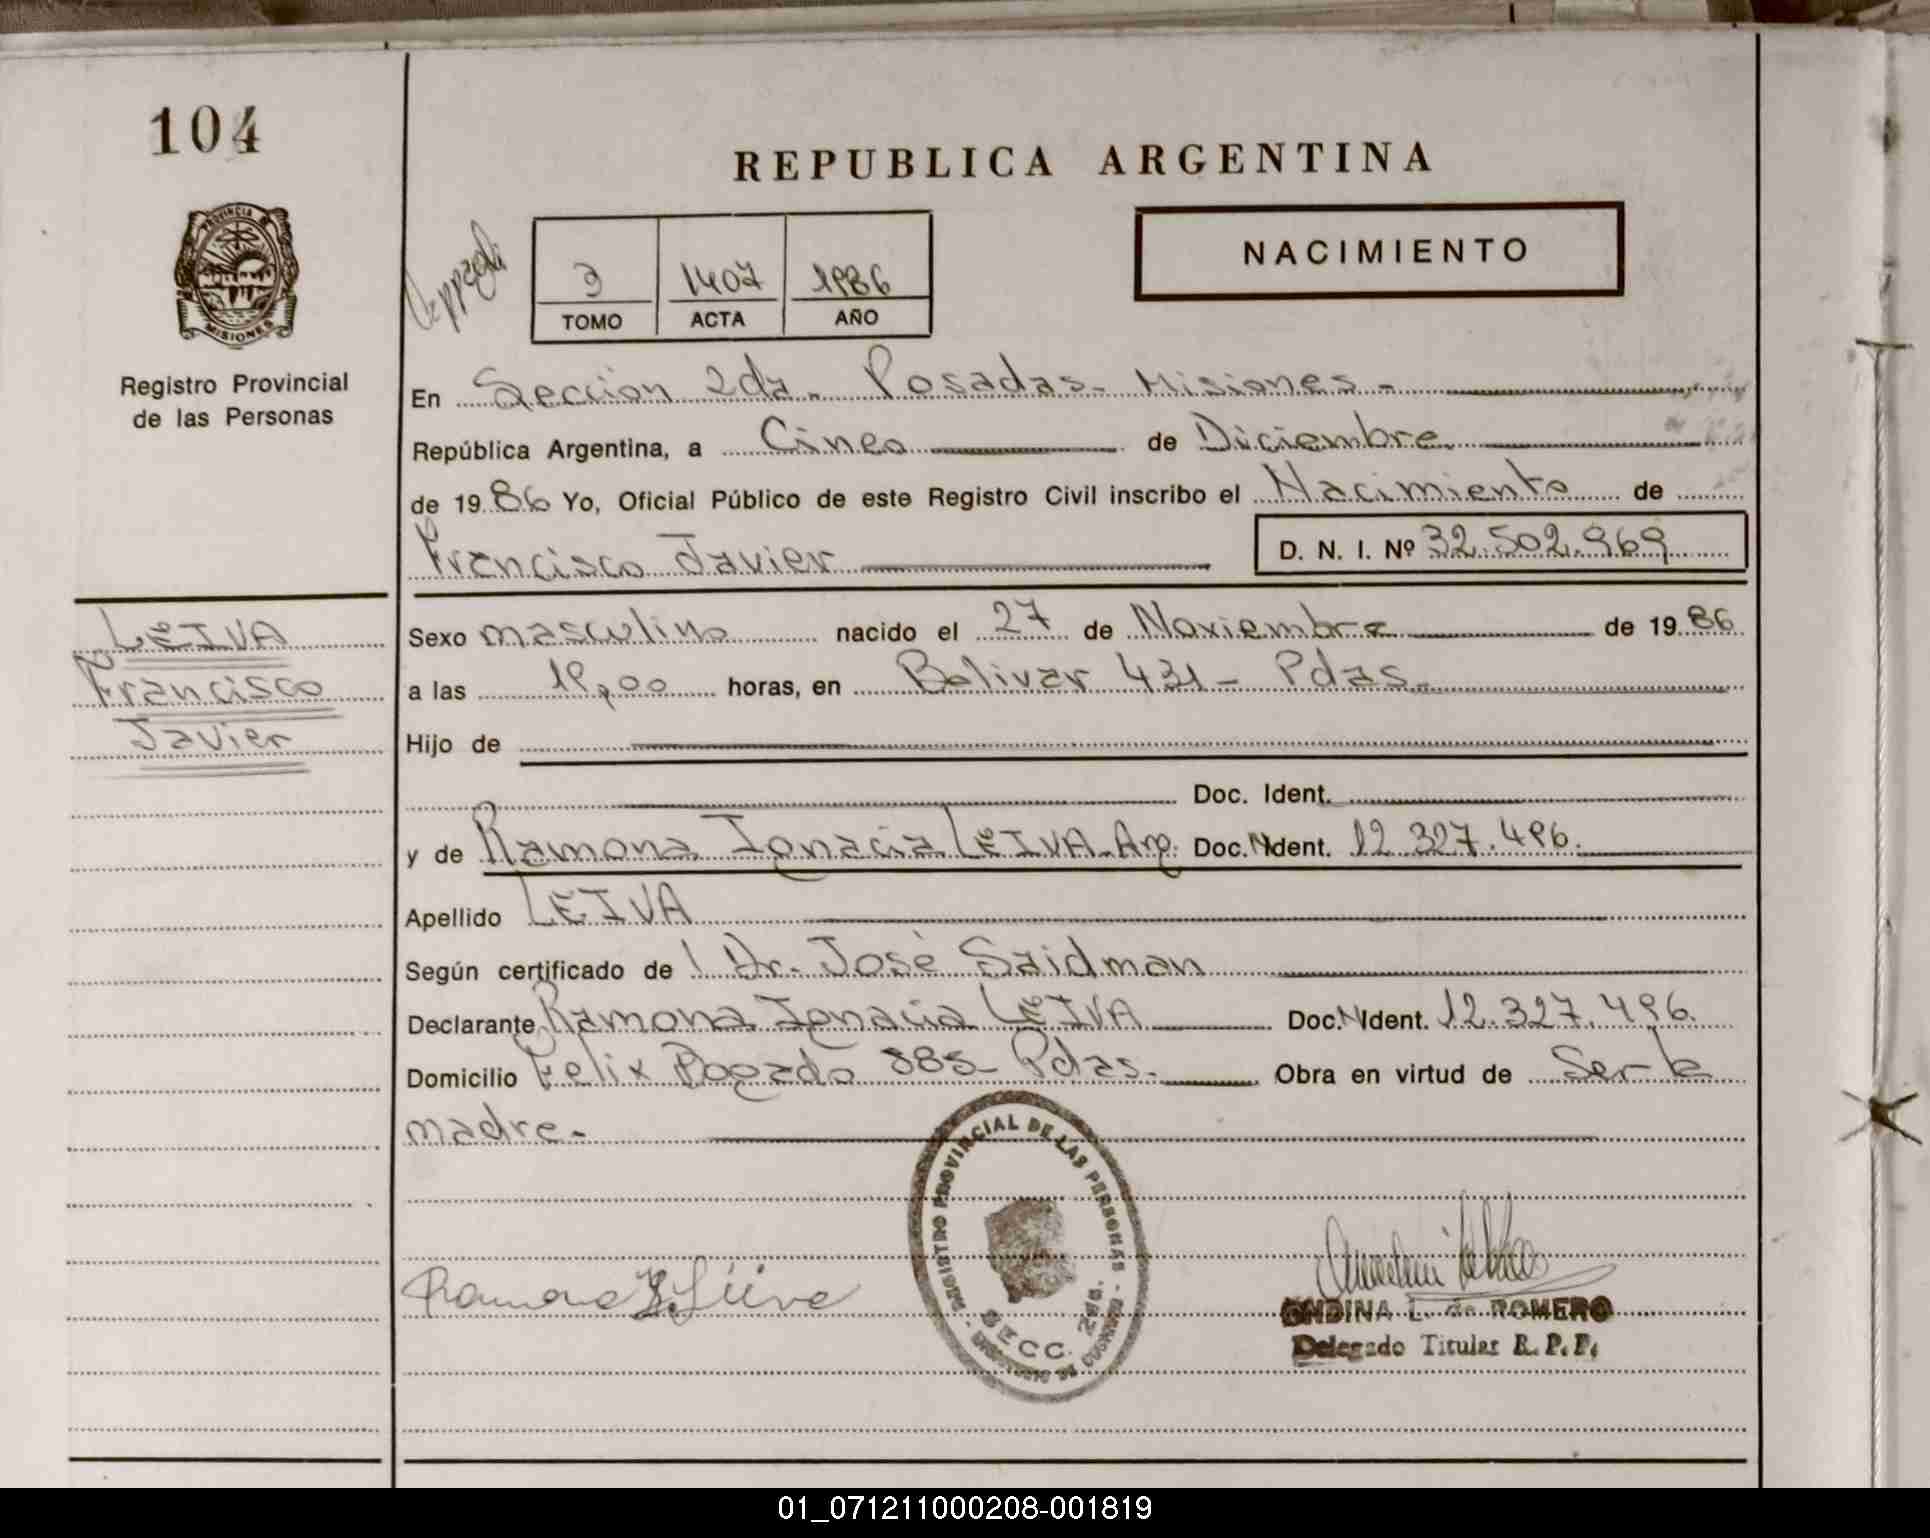 104
REPUBLICA ARGENTINA
PROVINCIA DE
MISIONES
3 1407 1986
TOMO ACTA AÑO
NACIMIENTO
Registro Provincial
de las Personas
En Sección 2da. Posadas- Misiones -
República Argentina, a Cinco de Diciembre
de 1986 Yo, Oficial Público de este Registro Civil inscribo el Nacimiento de
Francisco Javier D. N. I. Nº 32.502.969
LEIVA
Francisco
Javier
Sexo masculino nacido el 27 de Noviembre de 1986
a las 19,00 horas, en Bolivar 431 - Pdas.
Hijo de
Doc. Ident.
y de Ramona Ignacia LEIVA-Arg. Doc. Ident. 12.327.496.
Apellido LEIVA
Según certificado de Dr. José Saidman
Declarante Ramona Ignacia LEIVA Doc. Ident. 12.327.496.
Domicilio Felix Bogado 885- Pdas. Obra en virtud de Ser la
madre-
REGISTRO PROVINCIAL DE LAS PERSONAS
SECC. 2da.
ONDINA L. de ROMERO
Delegado Titular R. P. P.
01_071211000208-001819